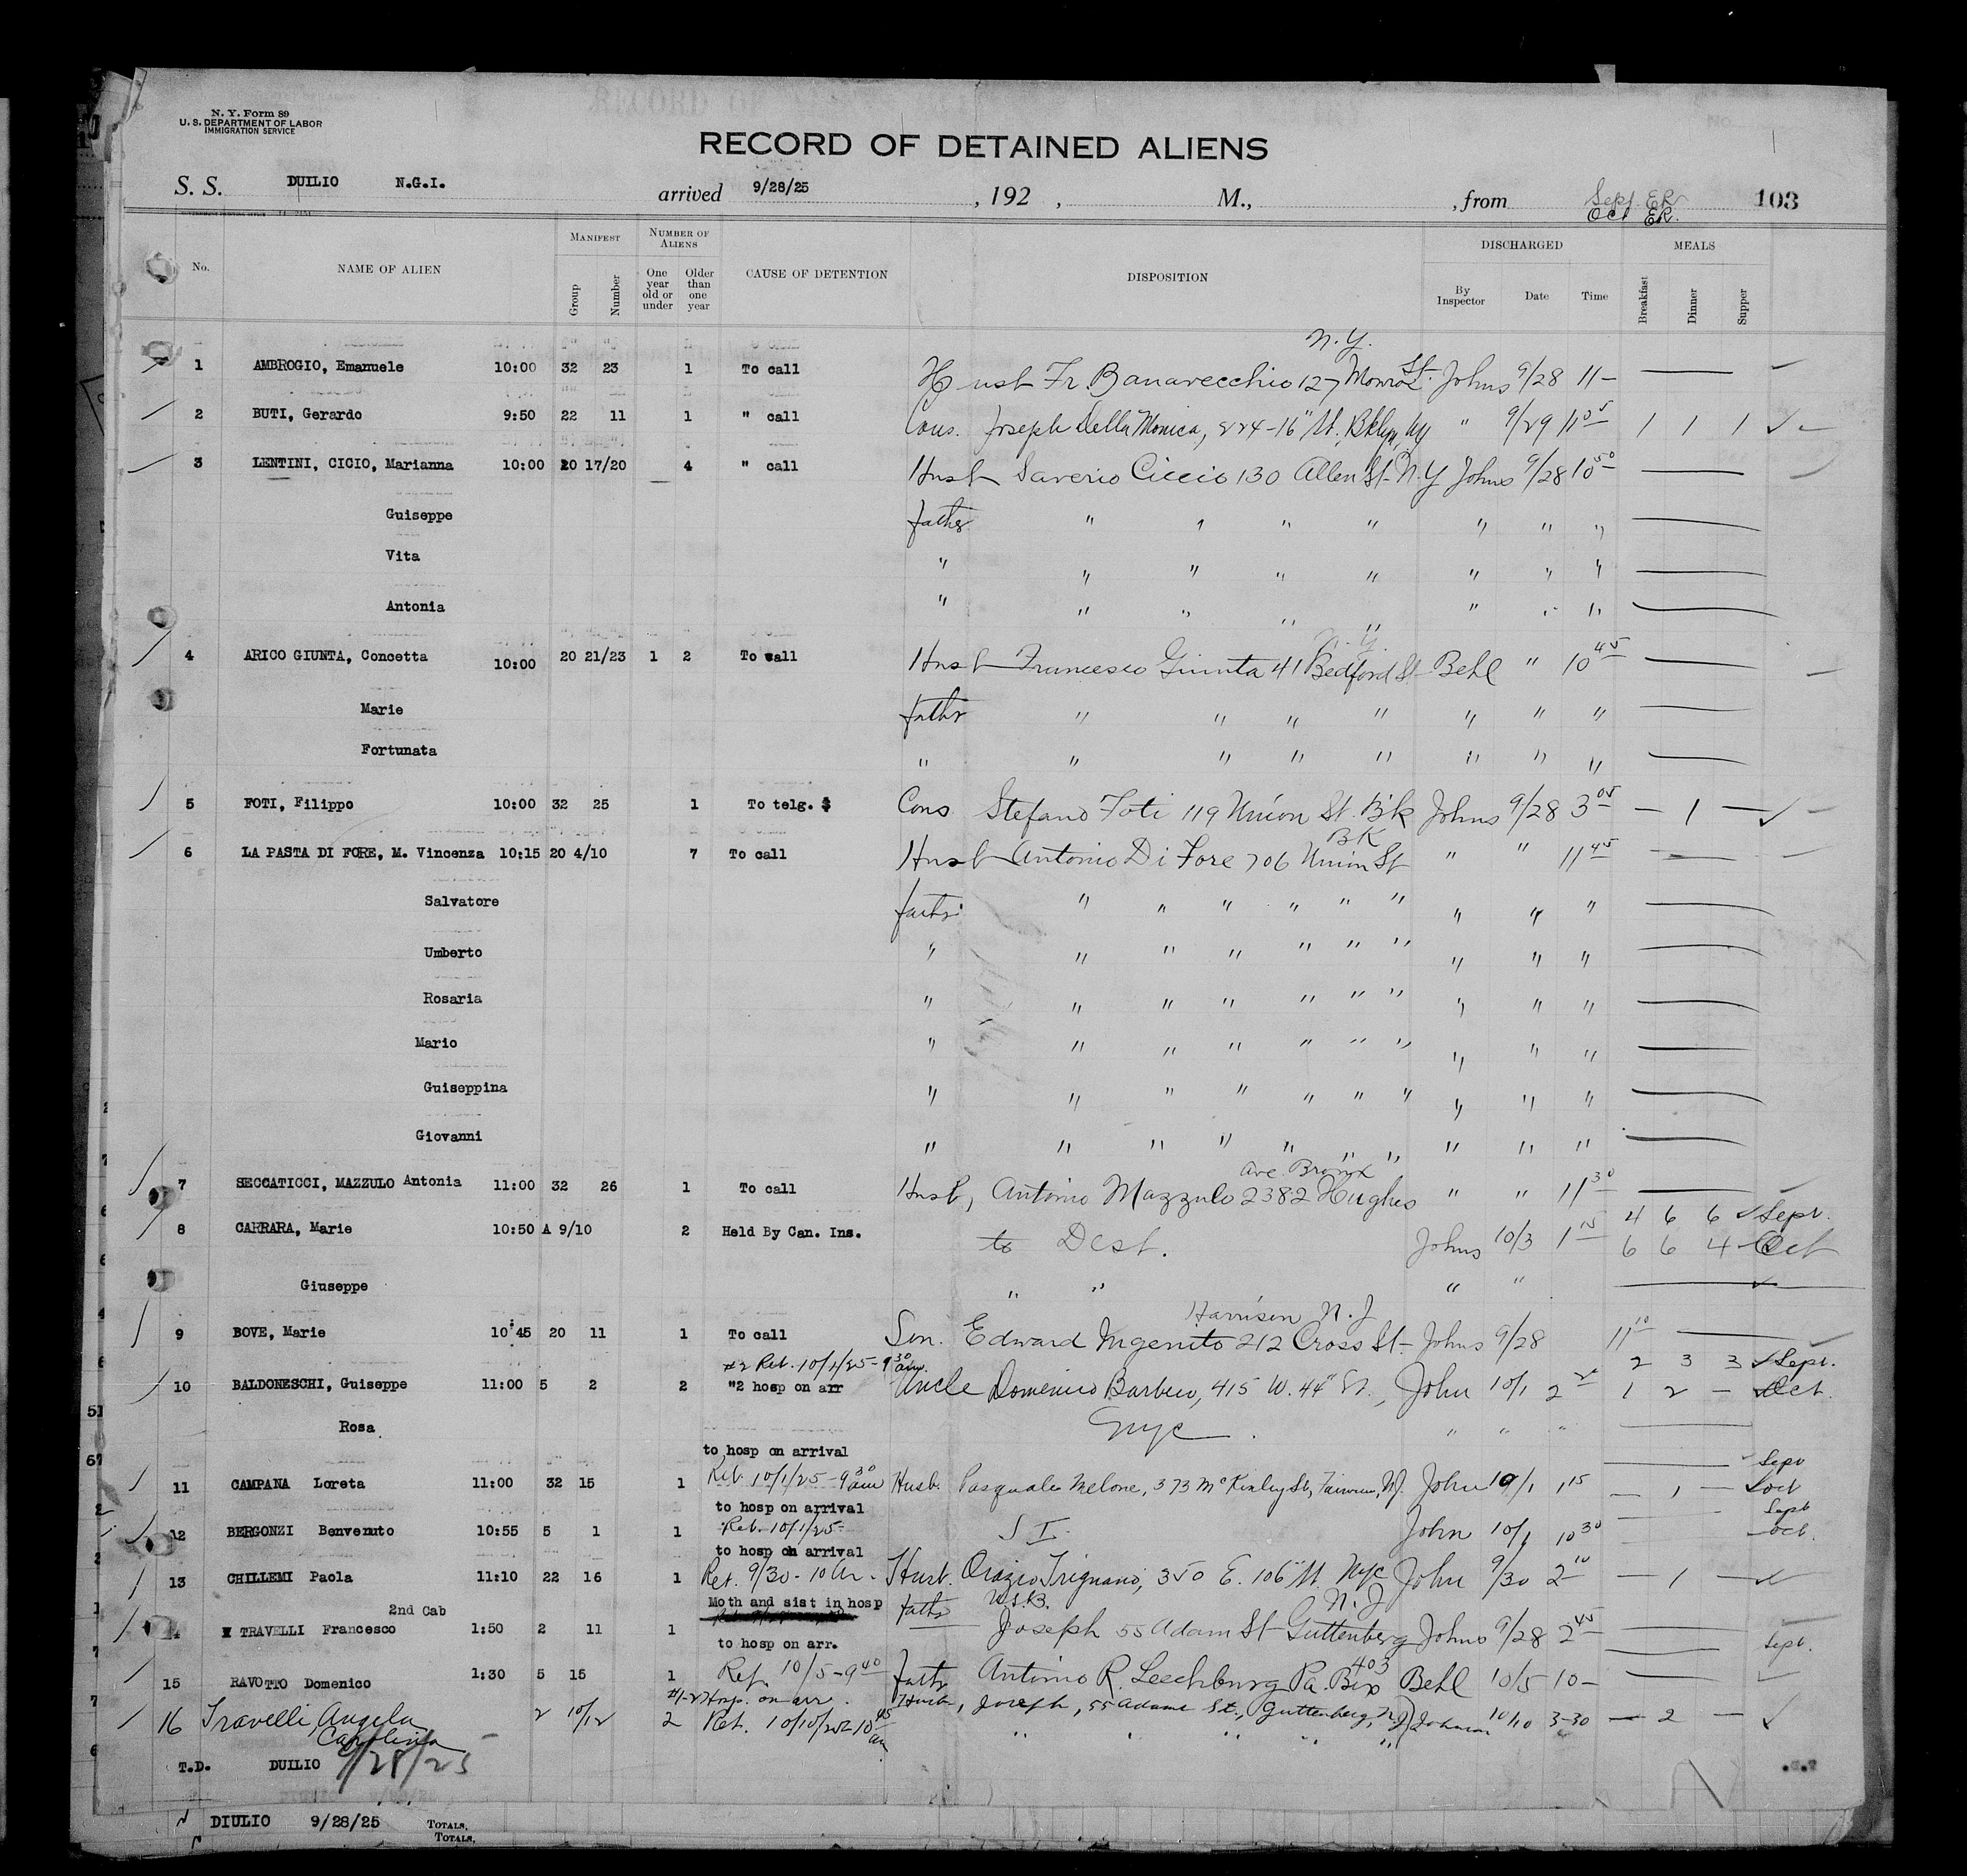 N. Y. Form 89
U. S. DEPARTMENT OF LABOR
IMMIGRATION SERVICE
RECORD OF DETAINED ALIENS
S. S. DUILIO N.G.I. arrived 9/28/25, 192 , M., , from Sept. E.R. 103
Oct E.R.
No. NAME OF ALIEN MANIFEST Group Number NUMBER OF ALIENS One year old or under Older than one year CAUSE OF DETENTION DISPOSITION DISCHARGED By Inspector Date Time MEALS Breakfast Dinner Supper
N.Y.
1 AMBROGIO, Emanuele 10:00 32 23 1 To call Fr. Banavecchio 127 Monroe St. Johns 9/28 11 —
2 BUTI, Gerardo 9:50 22 11 1 " call Cous. Joseph Della Monica, 224-16" St., Bklyn, NY " 9/29 11 05 1 1 1 ✓
3 LENTINI, CICIO, Marianna 10:00 20 17/20 4 " call Husb Saverio Ciccio 130 Allen St. N.Y Johns 9/28 10 50 —
Guiseppe father " " " " " " " —
Vita " " " " " " " " —
Antonia " " " " " " " " —
N.Y.
4 ARICO GIUNTA, Concetta 10:00 20 21/23 1 2 To call Husb Francesco Giunta 41 Bedford St Behl " 10 45 —
Marie father " " " " " " " —
Fortunata " " " " " " " " —
5 FOTI, Filippo 10:00 32 25 1 To telg. $ Cons Stefano Foti 119 Union St. B'k Johns 9/28 3 05 — 1 — ✓
BK
6 LA PASTA DI FORE, M. Vincenza 10:15 20 4/10 7 To call Husb Antonio Di Fore 706 Union St " " 11 45 —
Salvatore father " " " " " " " " " —
Umberto " " " " " " " " " " —
Rosaria " " " " " " " " " " —
Mario " " " " " " " " " " —
Guiseppina " " " " " " " " " " —
Giovanni " " " " " " " " " " —
Ave. Bronx
7 SECCATICCI, MAZZULO Antonia 11:00 32 26 1 To call Husb, Antonio Mazzulo 2382 Hughes " " 11 30 —
4 6 6 ✓ Sept.
8 CARRARA, Marie 10:50 A 9/10 2 Held By Can. Ins. to Dest. Johns 10/3 1 15 6 6 4 Oct
Giuseppe " " " " — ✓
Harrison N.J
9 BOVE, Marie 10:45 20 11 1 To call Son. Edward Ingenito 212 Cross St — Johns 9/28 11 10 —
#2 Ret. 10/1/25 - 9 30 am. 2 3 3 ✓ Sept.
10 BALDONESCHI, Guiseppe 11:00 5 2 2 "2 hosp on arr Uncle Domenico , 415 W. 44" St., John 10/1 2 1 2 — ✓ Oct.
Rosa NYC " " " —
to hosp on arrival Sept
11 CAMPANA Loreta 11:00 32 15 1 Ret. 10/1/25 - 9 30 am Husb. Pasquale Melone, 373 McKinley St, , NJ. John 10/1 1 15 — 1 — ✓ Oct
to hosp on arrival Sept
12 BERGONZI Benvenuto 10:55 5 1 1 Ret. 10/1/25 S I. John 10/1 10 30 Oct.
to hosp on arrival
13 CHILLEMI Paola 11:10 22 16 1 Ret. 9/30 - 10 Husb. Orazio Trignano, 350 E. 106" St. NYC John 9/30 2 10 — 1 — ✓
2nd Cab Moth and sist in hosp U.S.B. N.J
14 TRAVELLI Francesco 1:50 2 11 1 father Joseph 55 Adam St Guttenberg Johns 9/28 2 45 — Sept.
to hosp on arr.
15 RAVOTTO Domenico 1:30 5 15 1 Ret. 10/5 - 9 40 father Antonio R. Leechburg Pa. Box 403 Behl 10/5 10 — ✓
#1-2 Hosp. on arr.
16 Travelli Angela 2 10/12 2 Ret. 10/10/25 10 45 am Husb, Joseph, 55 Adams St., Guttenberg, N.J Johnson 10/10 3-30 — 2 — ✓
Carolina " " " " "
T.D. DUILIO 9/28/25
DIULIO 9/28/25 TOTALS,
TOTALS,